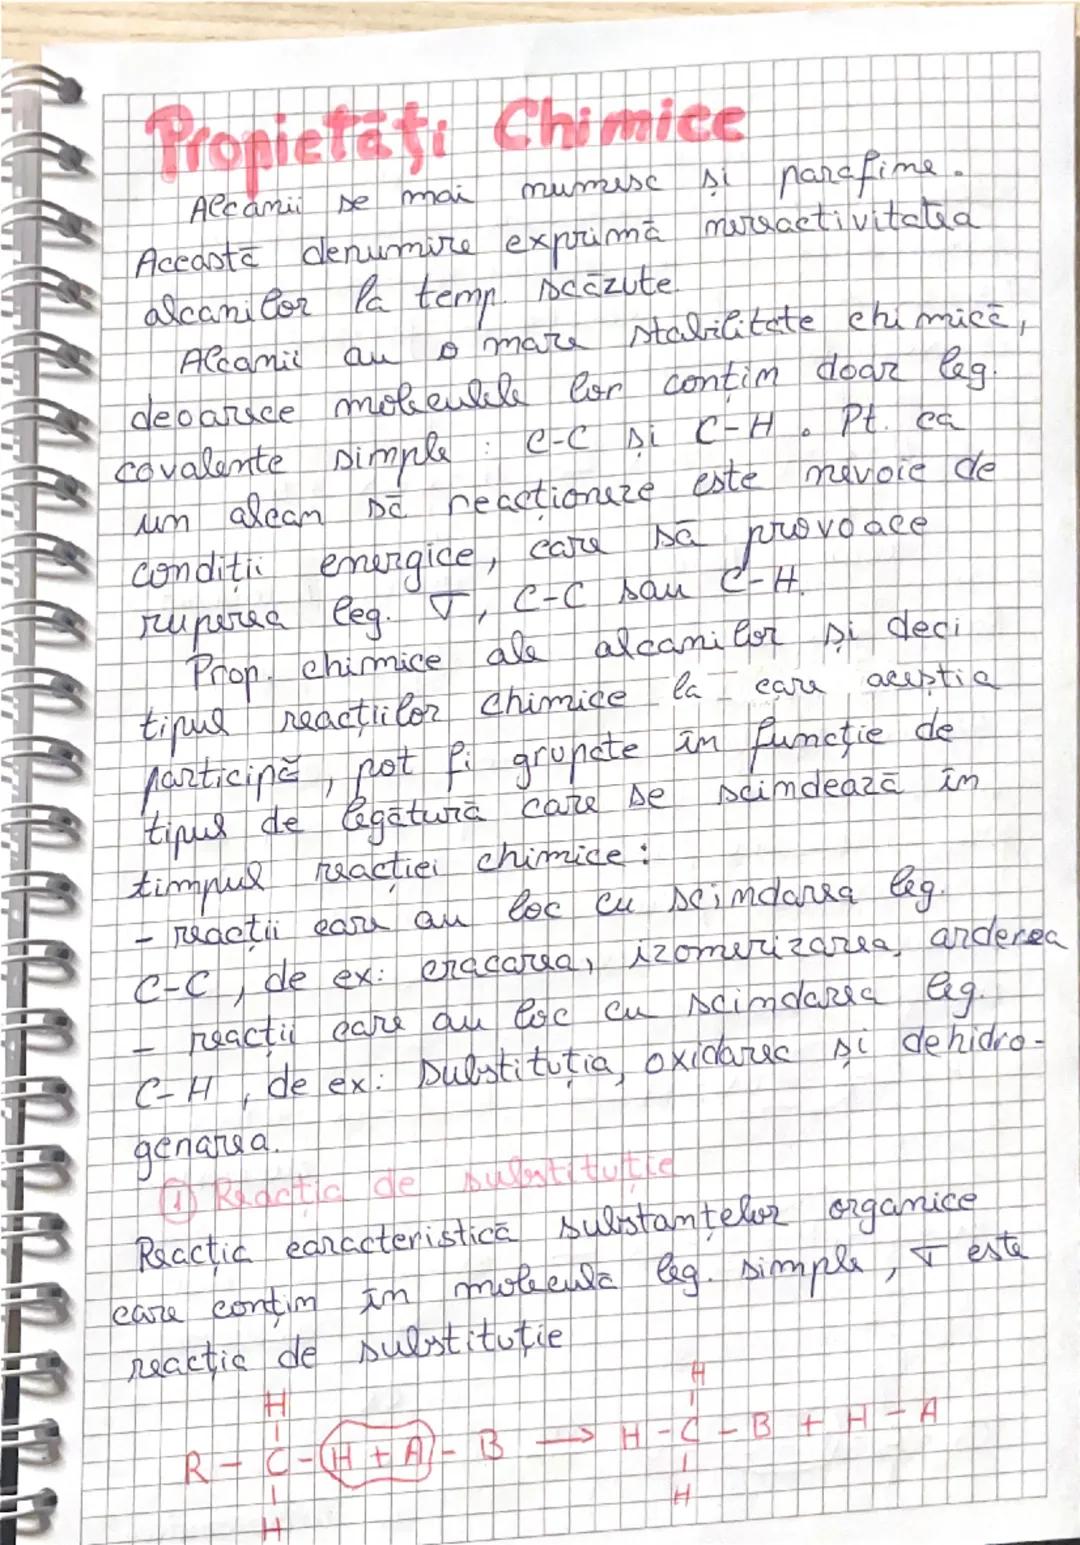 Propietăți Chimice
Alcanii se mai numesc și parafine.
Această denumire exprimă nereactivitatea
alcanilor la temp. scăzute.
Alcanii au o mare stabilitate chimică,
deoarece moleculele lor conțin doar leg.
covalente simple : C-C și C-H. Pt. ca
un alcan să reacționeze este nevoie de
condiții energice, care să provoace
ruperea leg. σ, C-C sau C-H.
Prop. chimice ale alcanilor și deci
tipul reacțiilor chimice la care aceștia
participă, pot fi grupate în funcție de
tipul de legătură care se scindează în
timpul reacției chimice :
- reacții care au loc cu scindarea leg.
C-C, de ex: cracarea, izomerizarea, arderea
- reacții care au loc cu scindarea leg.
C-H, de ex: substituția, oxidarea și dehidro-
genarea.
① Reacția de substituție
Reacția caracteristică substanțelor organice
care conțin în moleculă leg. simple, σ este
reacția de substituție
H H
R - C - (H + A) - B → H - C - B + H - A
H H